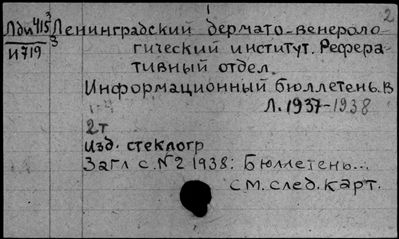 2
Лди415³ Ленинградский дермато-венероло-
И719 ³ гический институт. Рефера-
тивный отдел.
Информационный бюллетень. В
Л. 1937-1938
1-4
2т
Изд. стеклогр
Загл с №2 1938: Бюллетень...
см. след. карт.